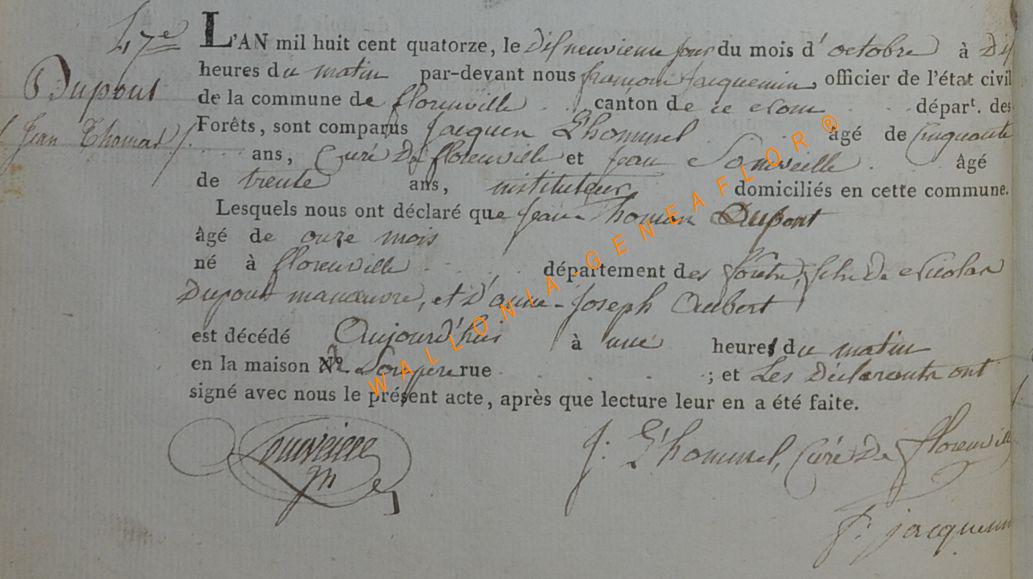 47e
Dupont
(Jean Thomas)
L'AN mil huit cent quatorze, le Dix neuvieme jour du mois d'octobre à Dix
heures du matin par-devant nous françois Jacquemin, officier de l'état civil
de la commune de florenville canton de ce départ. des
Forêts, sont comparus Jacques L'hommel âgé de Cinquante
ans, Curé De florenville et Jean âgé
de trente ans, instituteur, domiciliés en cette commune.
Lesquels nous ont déclaré que Jean Thomas Dupont
âgé de onze mois
né à florenville département des forêts, fils De Nicolas
Dupont manœuvre, et D'anne-Joseph Aubert
est décédé Aujourd'hui à une heure du matin
en la maison De son pere rue ; et Les Déclarants ont
signé avec nous le présent acte, après que lecture leur en a été faite.
J: L'hommel, Curé De florenville
F: jacquemin
WALLONIA-GENEAFLOR®